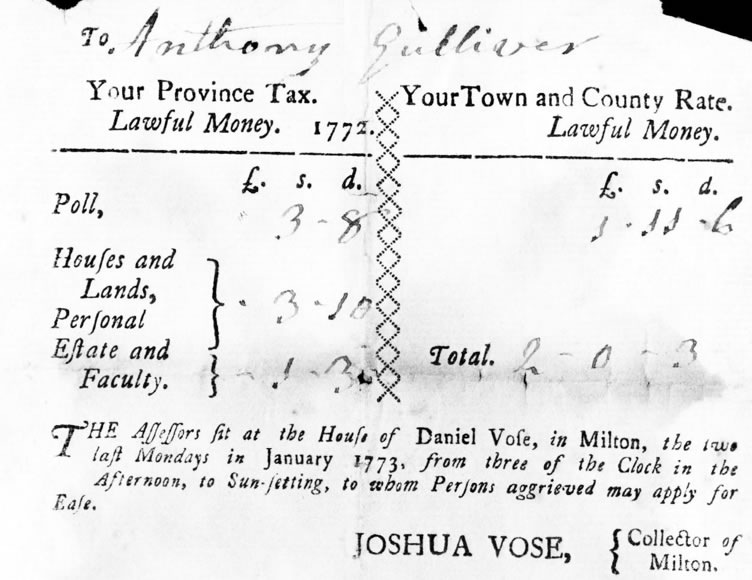 To, Anthony Gulliver
Your Province Tax.
Lawful Money. 1772.
£. s. d.
Poll, 3 - 8
Houſes and
Lands, 3 - 10
Perſonal
Eſtate and 1 - 3
Faculty.
Your Town and County Rate.
Lawful Money.
£. s. d.
1 - 11 - 6
Total. 2 - 0 - 3
THE Aſſeſſors ſit at the Houſe of Daniel Voſe, in Milton, the two
laſt Mondays in January 1773, from three of the Clock in the
Afternoon, to Sun-ſetting, to whom Perſons aggrieved may apply for
Eaſe.
JOSHUA VOSE, { Collector of
Milton.